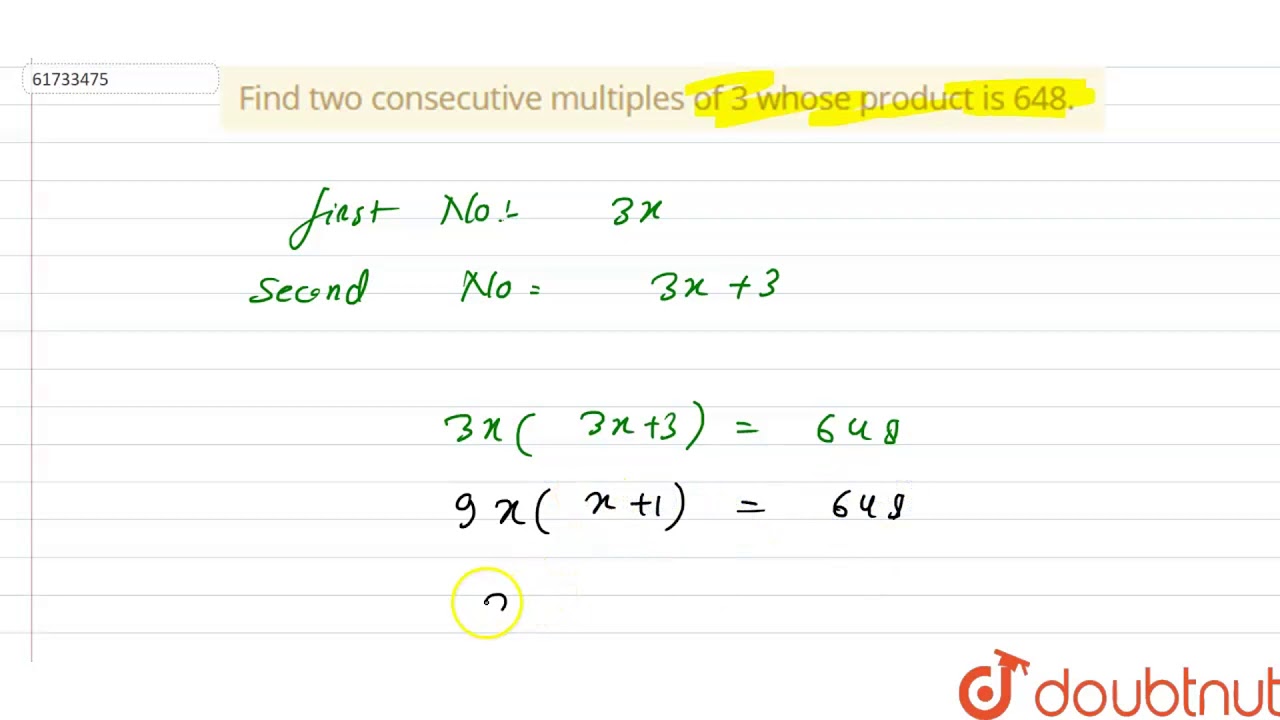 61733475
Find two consecutive multiples of 3 whose product is 648.
first No:- 3x
Second No = 3x + 3
3x( 3x+3) = 648
9x( x+1) = 648
doubtnut